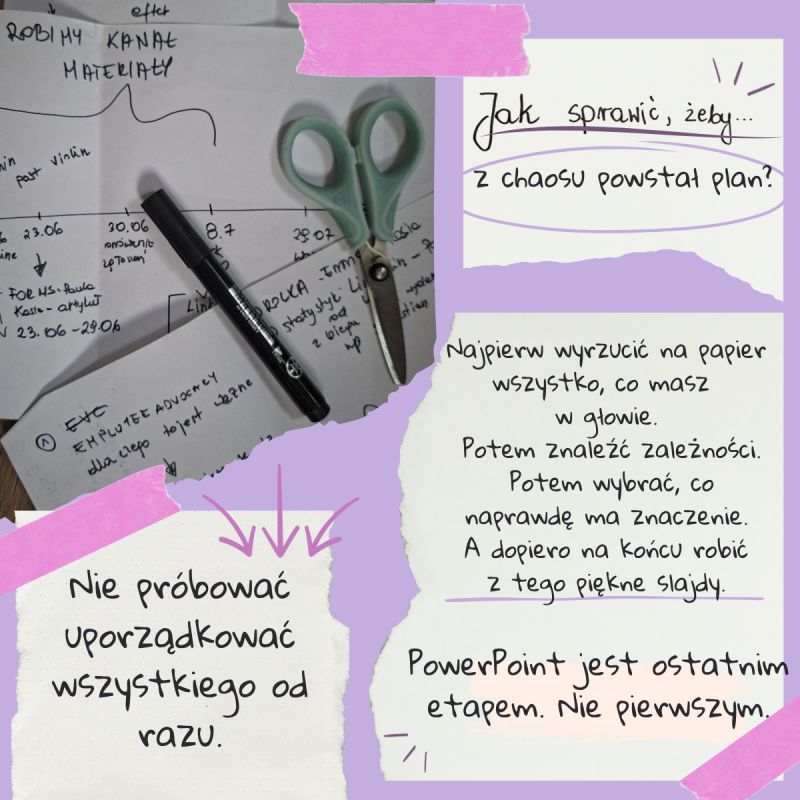 efter
ROBIMY KANAŁ
MATERIAŁY
post
23.06
30.06
8.7
FOR MS. Paula
Kasia - artykuł
23.06 - 29.06
ROLKA
statystyki
od
z biegu
EMPLOYEE ADVOCACY
dlaczego to jest ważne
Jak sprawić, żeby...
z chaosu powstał plan?
Najpierw wyrzucić na papier
wszystko, co masz
w głowie.
Potem znaleźć zależności.
Potem wybrać, co
naprawdę ma znaczenie.
A dopiero na końcu robić
z tego piękne slajdy.
Nie próbować
uporządkować
wszystkiego od
razu.
PowerPoint jest ostatnim
etapem. Nie pierwszym.